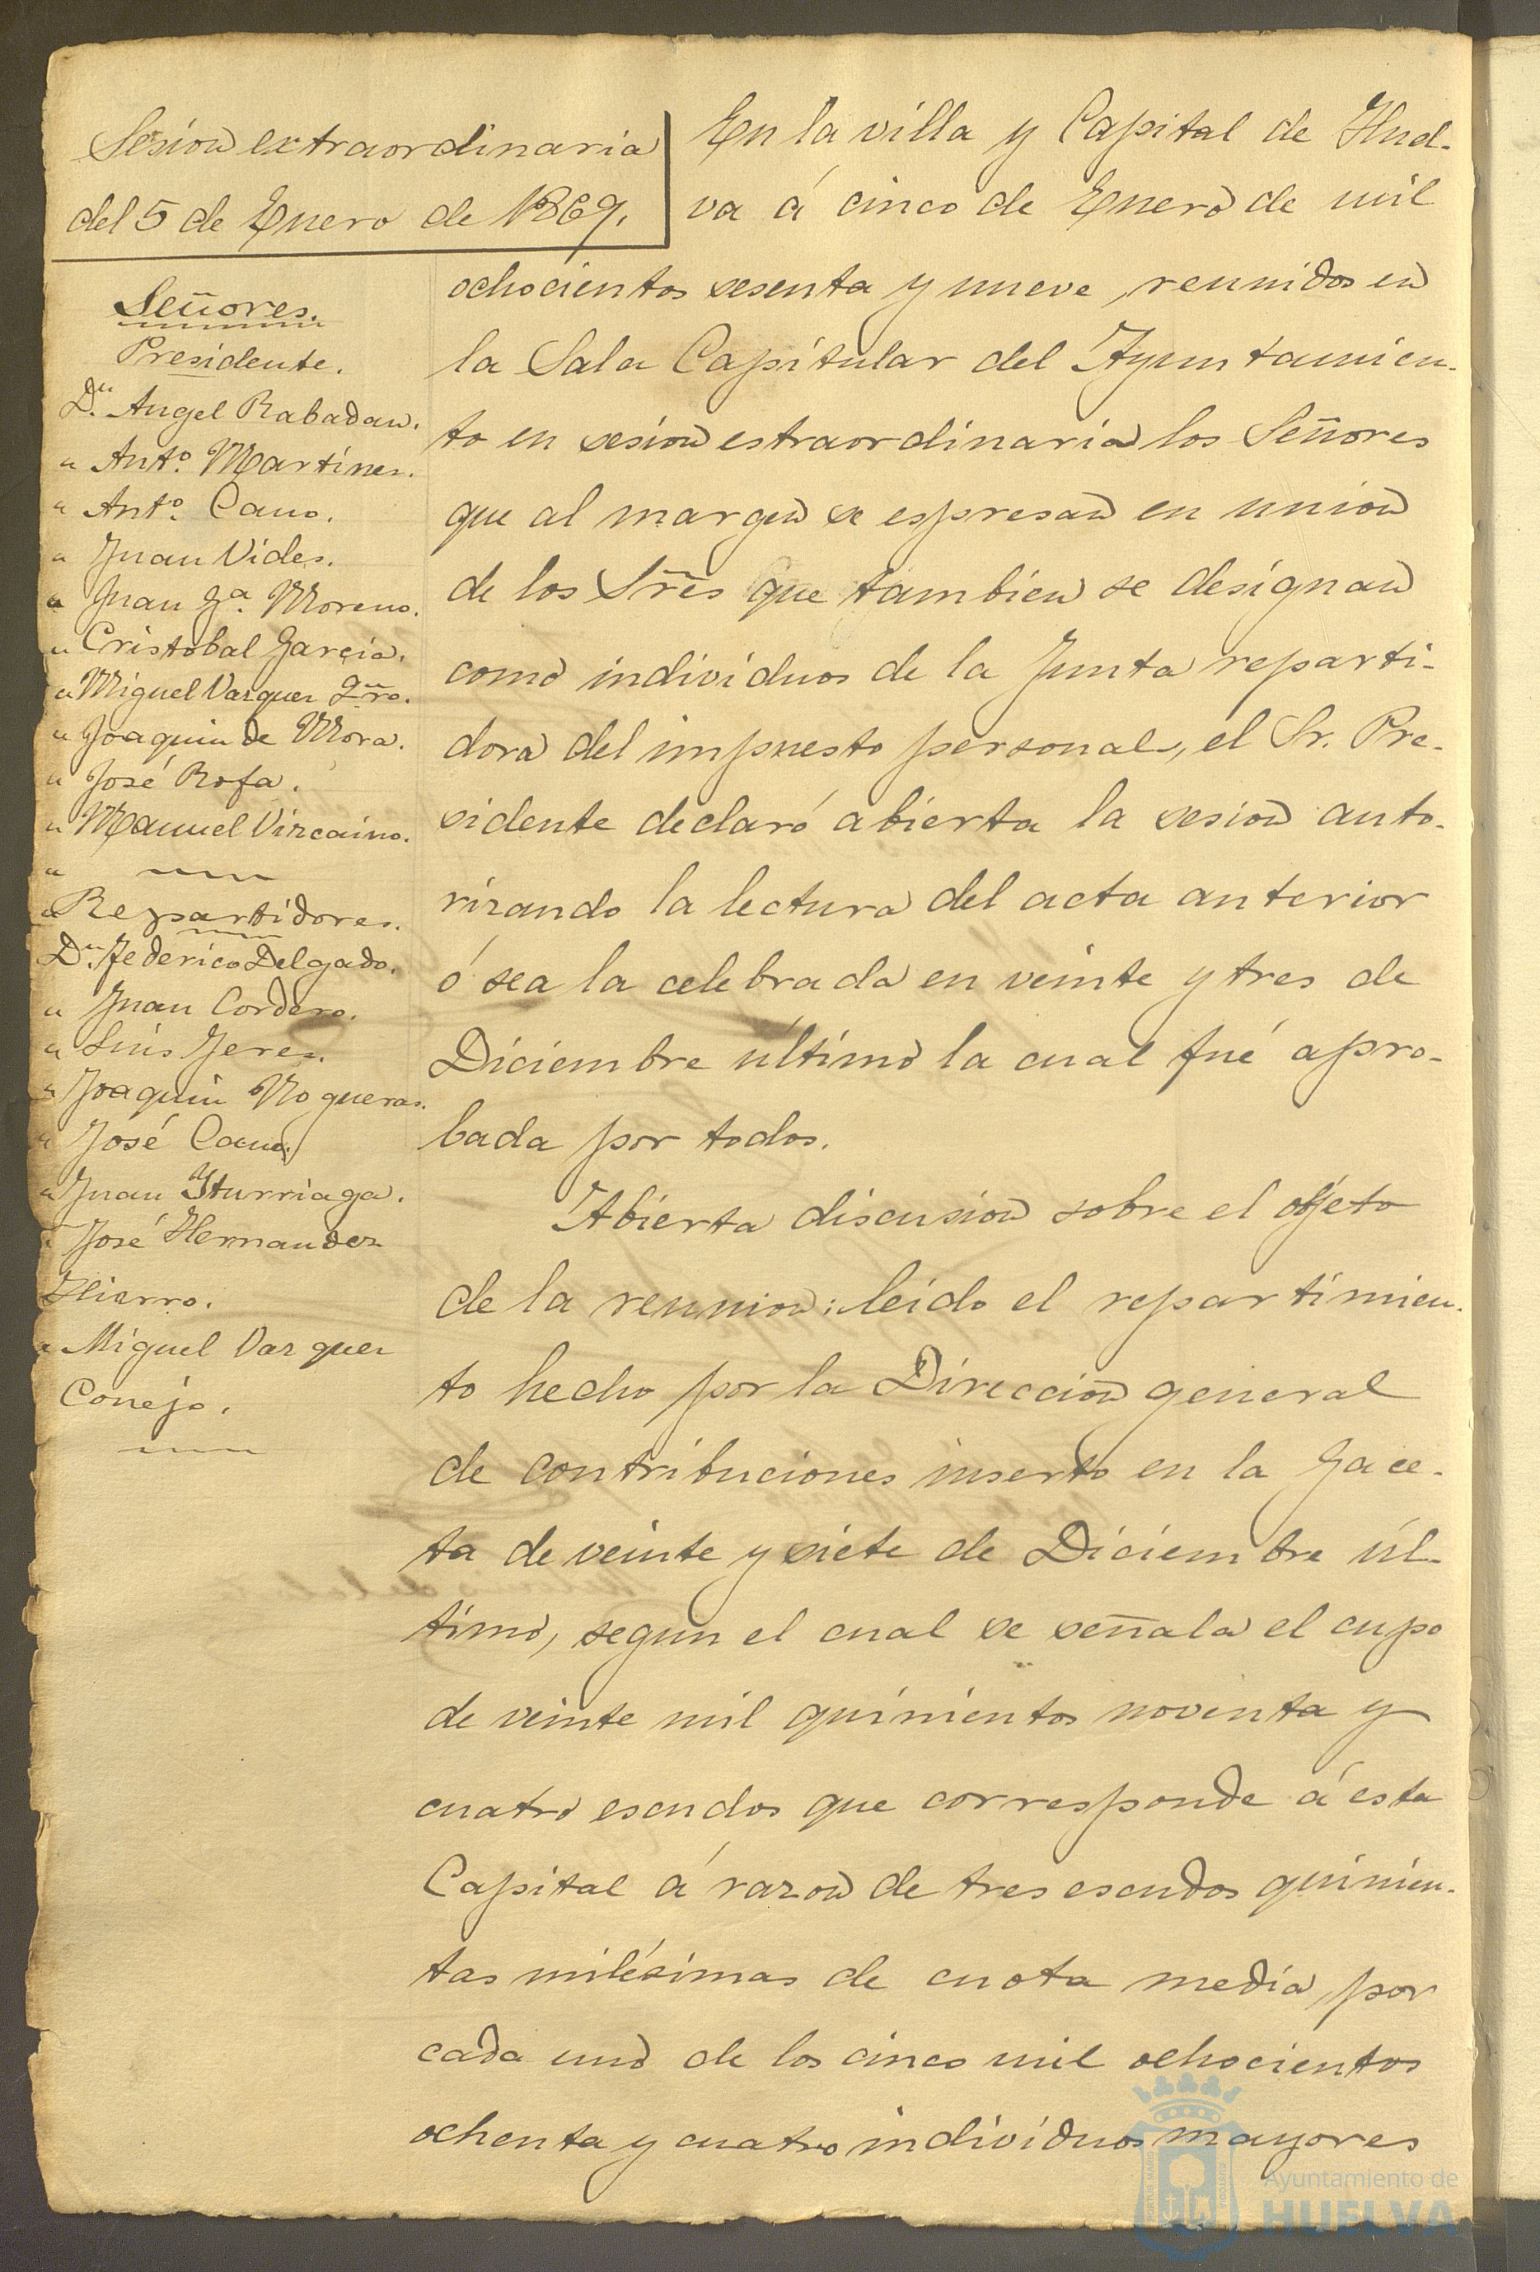 Sesion extraordinaria
del 5 de Enero de 1869.
Señores.
Presidente.
Dn. Angel Rabadan.
" Anto. Martinez.
" Anto. Cano.
" Juan Vides.
" Juan Ga. Moreno.
" Cristobal Garcia.
" Miguel Vazquez
" Joaquin de Mora.
" José Rofa.
" Manuel Vizcaino.
"
" Repartidores.
Dn. Federico Delgado.
" Juan Cordero.
" Luis Jerez.
" Joaquin Nogueras.
" José Cano.
" Juan Yturriaga.
" José Hernandez
Hierro.
" Miguel Vazquez
Conejo.
En la villa y Capital de Huel-
va á cinco de Enero de mil
ochocientos sesenta y nueve, reunidos en
la Sala Capitular del Ayuntamien-
to en sesion estraordinaria los Señores
que al margen se espresan en union
de los Sres que tambien se designan
como individuos de la Junta reparti-
dora del impuesto personal, el Sr. Pre-
sidente declaró abierta la sesion auto-
rizando la lectura del acta anterior
ó sea la celebrada en veinte y tres de
Diciembre último la cual fué apro-
bada por todos.
Abierta discusion sobre el objeto
de la reunion; leido el repartimien-
to hecho por la Direccion general
de contribuciones inserto en la Gace-
ta de veinte y siete de Diciembre úl-
timo, segun el cual se señala el cupo
de veinte mil quinientos noventa y
cuatro escudos que corresponde á esta
Capital á razon de tres escudos quinien-
tas milésimas de cuota media, por
cada uno de los cinco mil ochocientos
ochenta y cuatro individuos mayores
Ayuntamiento de
HUELVA